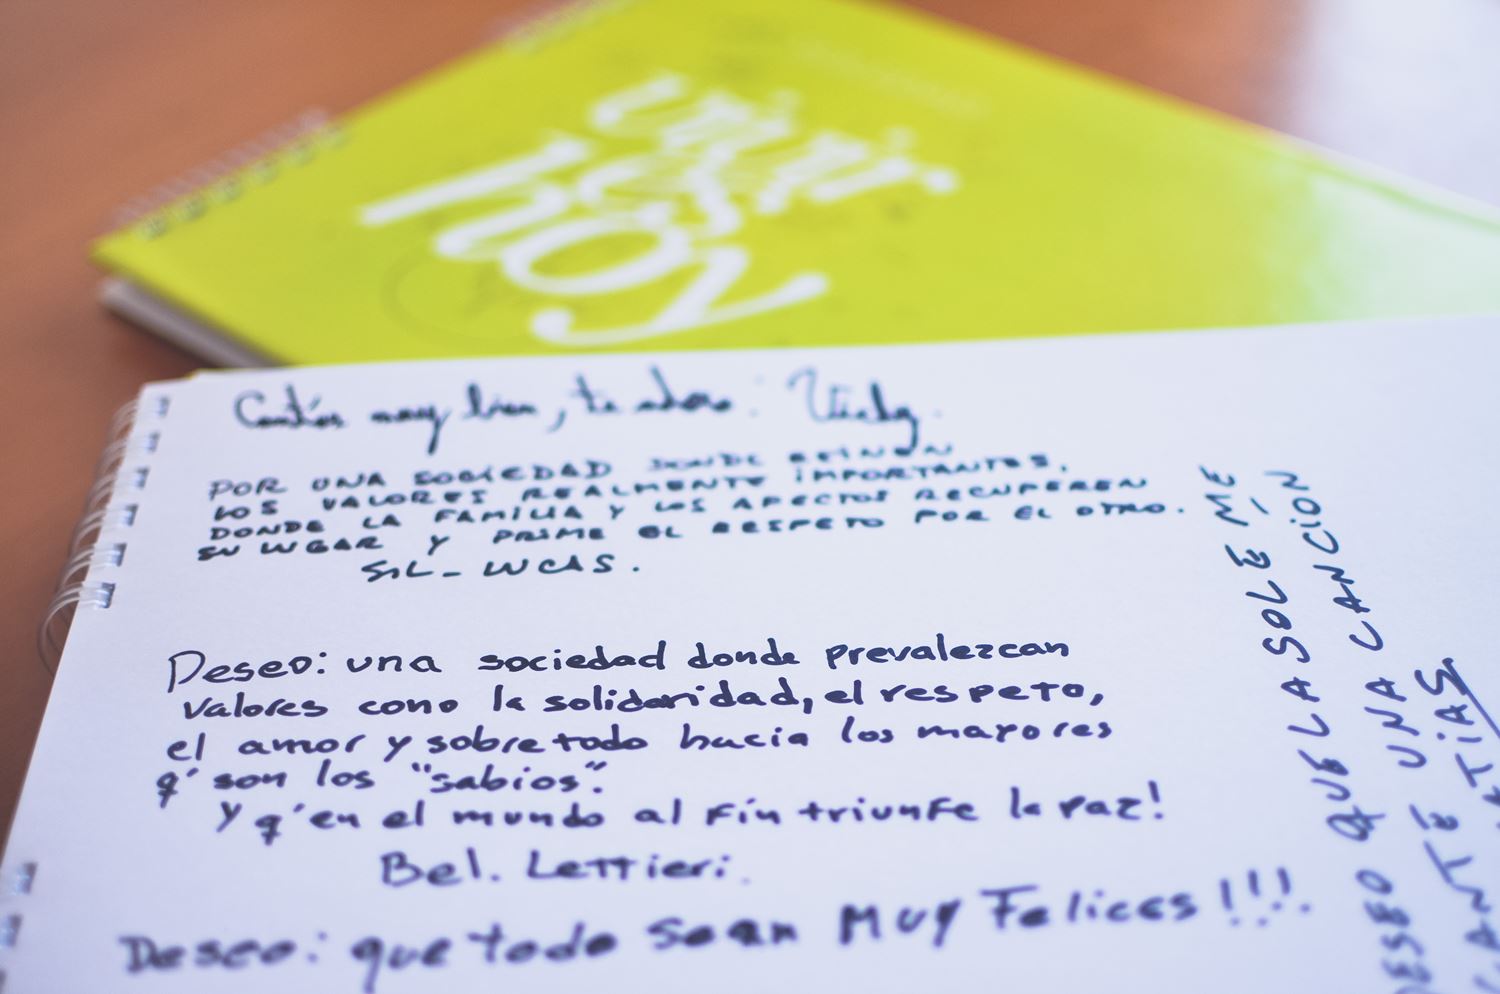 vivir
es
hoy
Cantás muy bien, te adoro. Vicky.
POR UNA SOCIEDAD DONDE REINEN
LOS VALORES REALMENTE IMPORTANTES.
DONDE LA FAMILIA Y LOS AFECTOS RECUPEREN
SU LUGAR Y PRIME EL RESPETO POR EL OTRO.
SIL_ LUCAS.
Deseo: una sociedad donde prevalezcan
valores como la solidaridad, el respeto,
el amor y sobre todo hacia los mayores
q' son los "sabios".
Y q' en el mundo al fin triunfe la paz!
Bel. Lettieri.
Deseo: que todo sean MUY Felices!!!.
DESEO QUE LA SOLE ME
CANTE UNA CANCIÓN